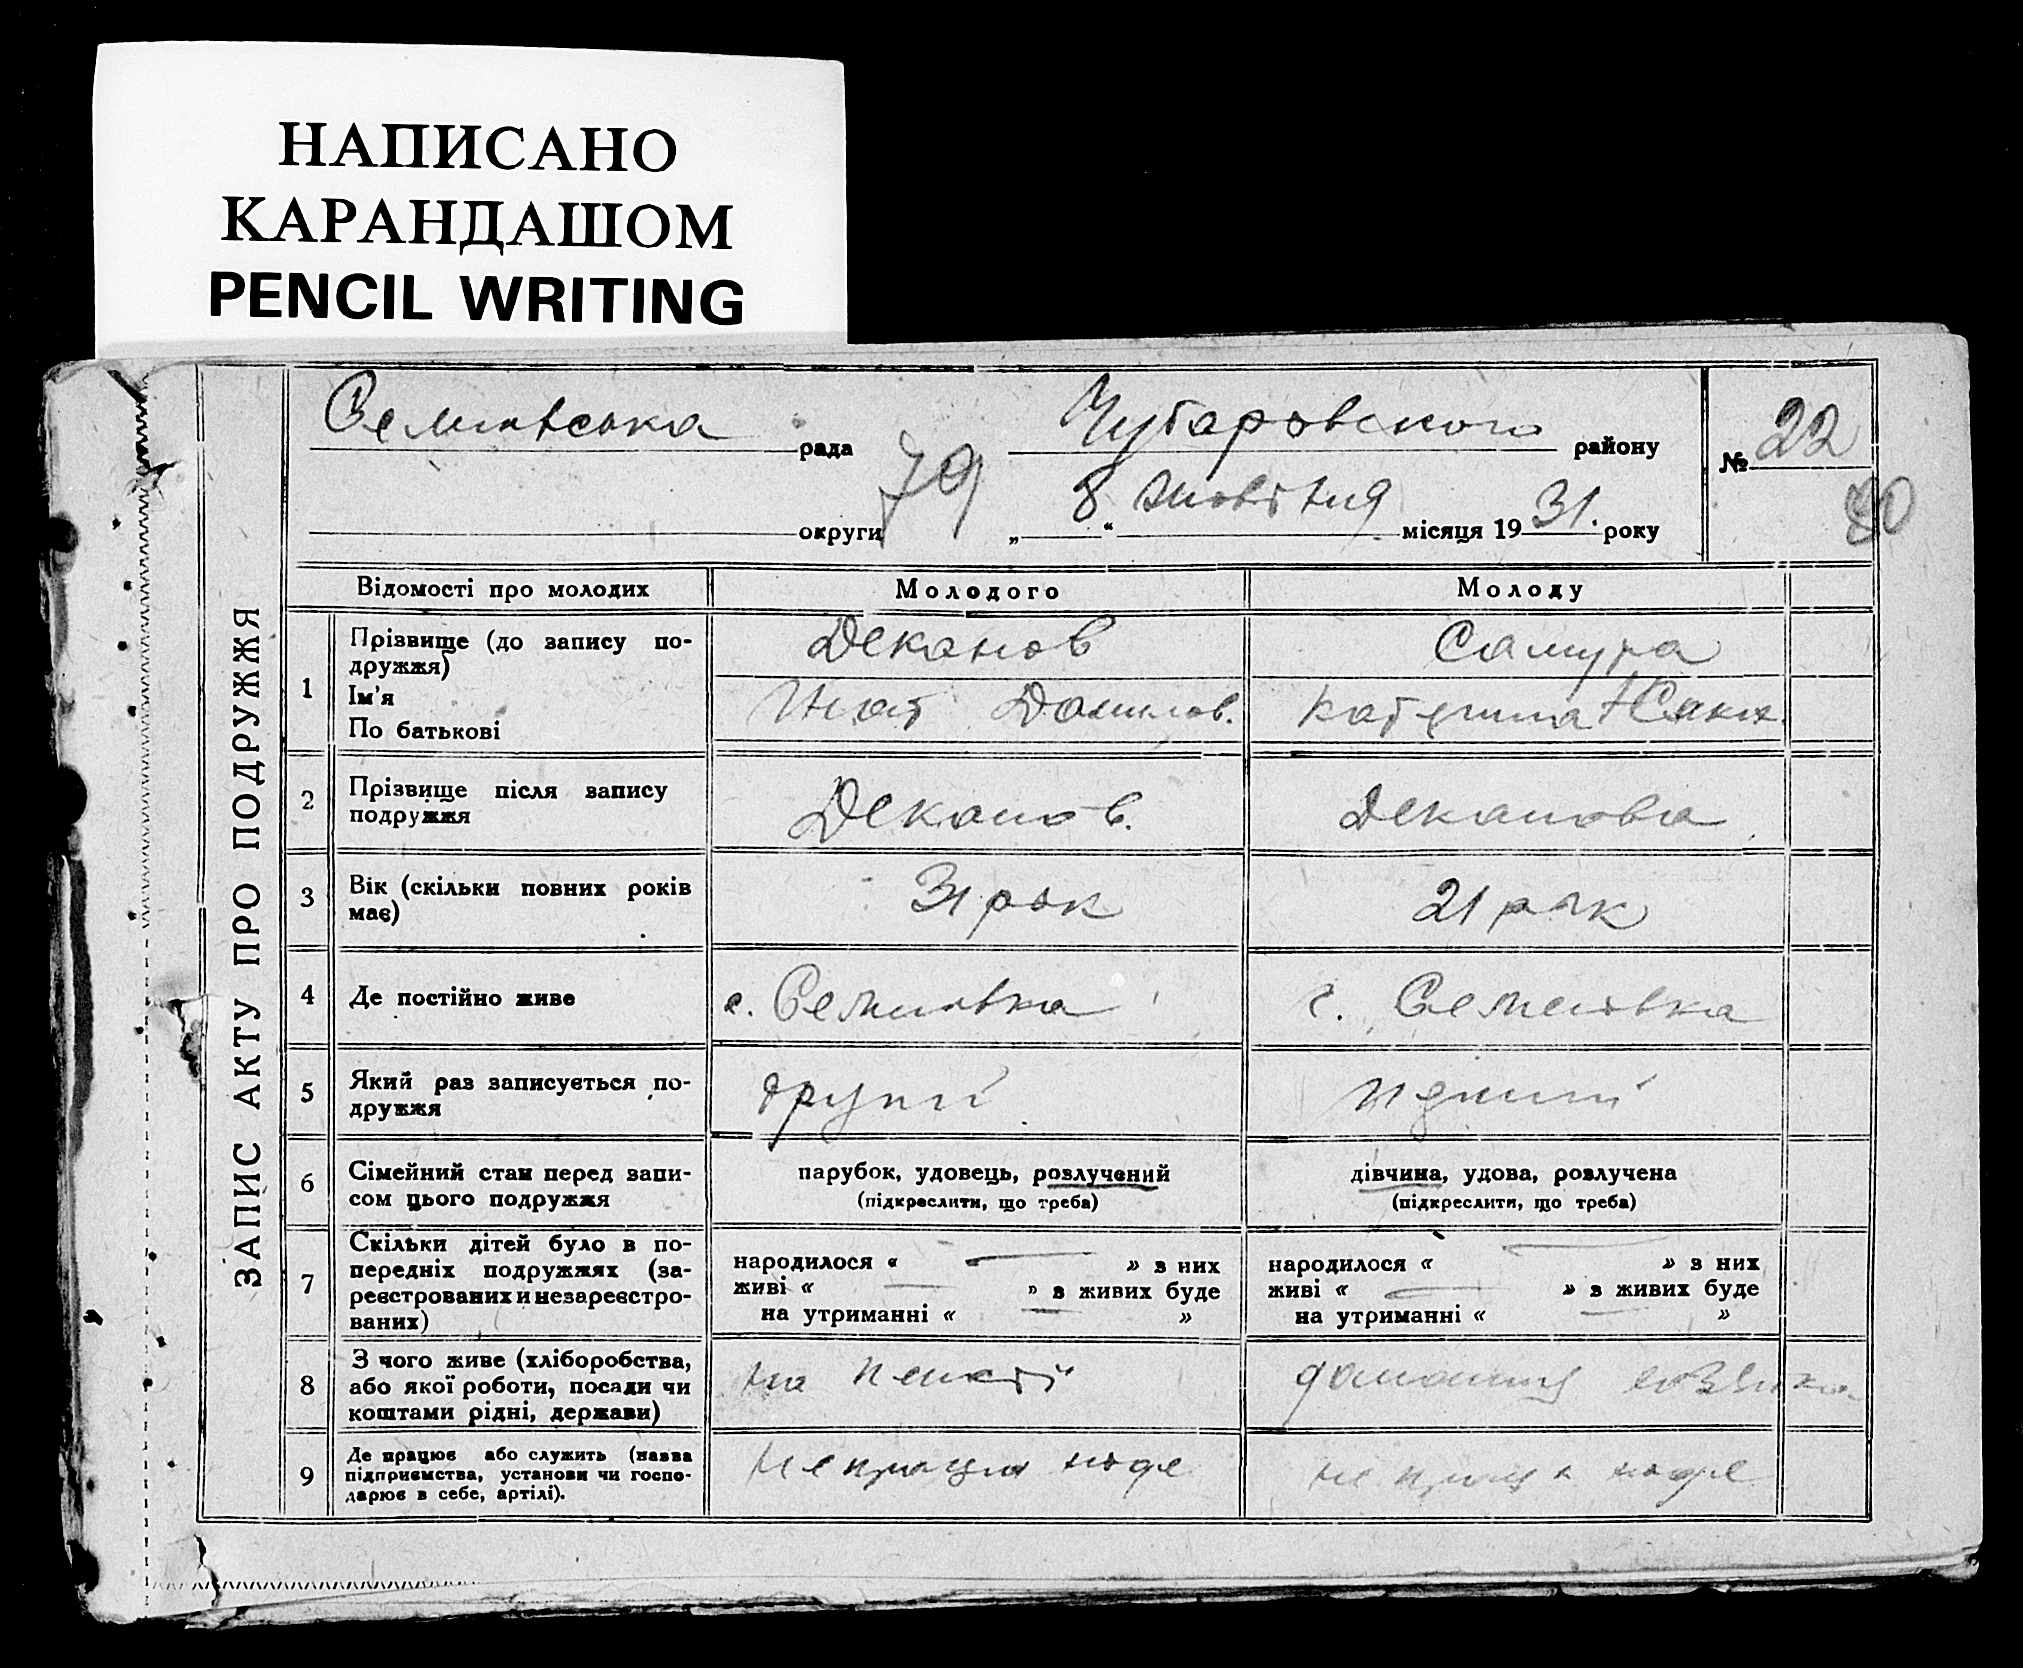 НАПИСАНО
КАРАНДАШОМ
PENCIL WRITING
ЗАПИС АКТУ ПРО ПОДРУЖЖЯ
Семенівська рада
Чубаровского району
№ 22
79
80
округи
„ 8 “ жовтня місяця 19 31. року
Відомості про молодих Молодого Молоду
1
Прізвище (до запису по-
дружжя)
Ім'я
По батькові
Деканов
Гнат Данилов.
Самура
Катерина
2
Прізвище після запису
подружжя
Деканов.
Деканова
3
Вік (скільки повних років
має)
31 рок
21 рок
4
Де постійно живе
с. Семеновка
с. Семеновка
5
Який раз записується по-
дружжя
другий
6
Сімейний стан перед запи-
сом цього подружжя
парубок, удовець, розлучений
(підкреслити, що треба)
дівчина, удова, розлучена
(підкреслити, що треба)
7
Скільки дітей було в по-
передніх подружжях (за-
реєстрованих и незареєстро-
ваних)
народилося « — » з них
живі « — » з живих буде
на утриманні « — »
народилося « — » з них
живі « — » з живих буде
на утриманні « — »
8
З чого живе (хліборобства,
або якої роботи, посади чи
коштами рідні, держави)
на пенсії
домашня
9
Де працює або служить (назва
підприємства, установи чи госпо-
дарює в себе, артілі).
не працює ноде
не працює ноде